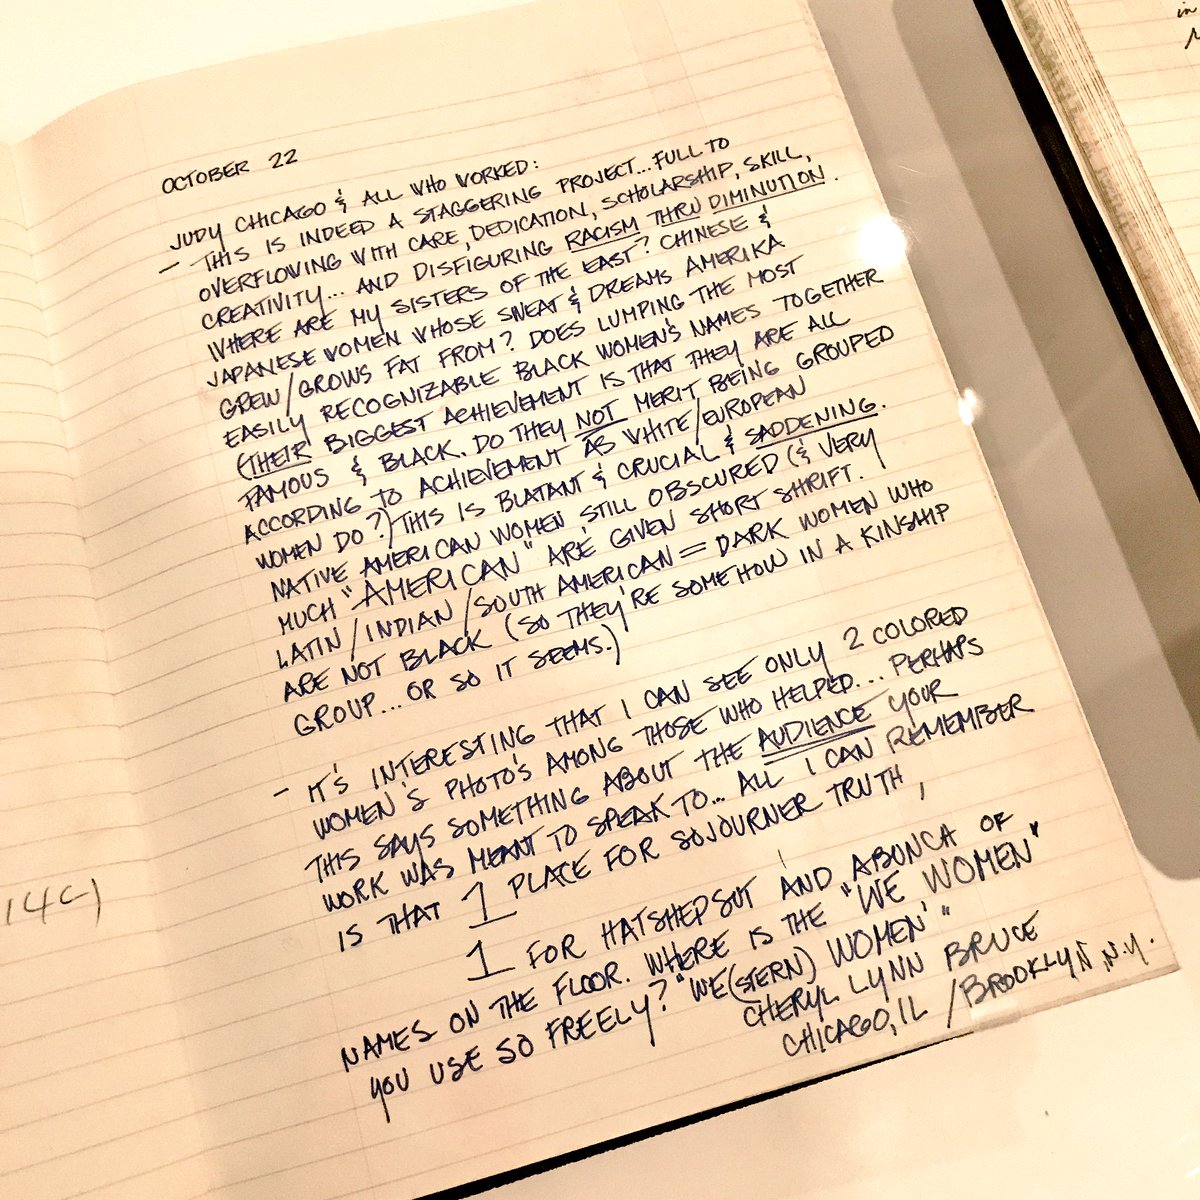 OCTOBER 22
JUDY CHICAGO & ALL WHO WORKED:
– THIS IS INDEED A STAGGERING PROJECT... FULL TO
OVERFLOWING WITH CARE, DEDICATION, SCHOLARSHIP, SKILL,
CREATIVITY... AND DISFIGURING RACISM THRU DIMINUTION.
WHERE ARE MY SISTERS OF THE EAST? CHINESE &
JAPANESE WOMEN WHOSE SWEAT & DREAMS AMERIKA
GREW/GROWS FAT FROM? DOES LUMPING THE MOST
EASILY RECOGNIZABLE BLACK WOMEN'S NAMES TOGETHER
(THEIR BIGGEST ACHIEVEMENT IS THAT THEY ARE ALL
FAMOUS & BLACK. DO THEY NOT MERIT BEING GROUPED
ACCORDING TO ACHIEVEMENT AS WHITE/EUROPEAN
WOMEN DO?) THIS IS BLATANT & CRUCIAL & SADDENING.
NATIVE AMERICAN WOMEN, STILL OBSCURED (& VERY
MUCH "AMERICAN" ARE GIVEN SHORT SHRIFT.
LATIN/INDIAN/SOUTH AMERICAN = DARK WOMEN WHO
ARE NOT BLACK (SO THEY'RE SOMEHOW IN A KINSHIP
GROUP... OR SO IT SEEMS.)
– IT'S INTERESTING THAT I CAN SEE ONLY 2 COLORED
WOMEN'S PHOTO'S AMONG THOSE WHO HELPED... PERHAPS
THIS SAYS SOMETHING ABOUT THE AUDIENCE YOUR
WORK WAS MEANT TO SPEAK TO... ALL I CAN REMEMBER
IS THAT 1 PLACE FOR SOJOURNER TRUTH,
1 FOR HATSHEPSUT AND ABUNCA OF
NAMES ON THE FLOOR. WHERE IS THE "WE WOMEN"
YOU USE SO FREELY? "WE(STERN) WOMEN'"
CHERYL LYNN BRUCE
CHICAGO, IL / BROOKLYN, N.Y.
in